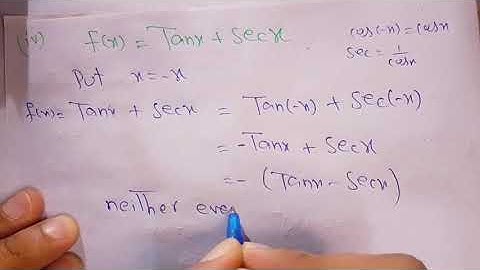 (iv) f(x) = Tanx + Secx
cos(-x) = cosx
sec = 1/cosx
Put x = -x
f(x) = Tanx + Secx = Tan(-x) + Sec(-x)
= -Tanx + Secx
= - (Tanx - Secx)
neither eve